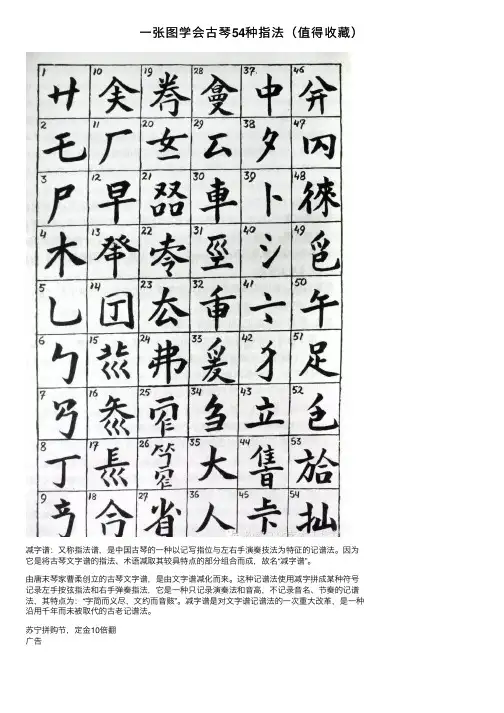 一张图学会古琴54种指法（值得收藏）
1 10 19 28 37. 46
中
2 11 20 29 38 47
乇 厂 厶 夕
3 12 21 30 39 48
尸 早 車 卜 徠
4 13 22 31 40 49
木 氵
5 14 23 32 41 50
乚 厶 亠 午
6 15 24 33 42 51
勹 弗 爰 犭 足
7 16 25 34 43 52
刍 立
8 17 26 35 44 53
丁 大
9 18 27 36 45 54
合 省 人 卡 拙
减字谱：又称指法谱，是中国古琴的一种以记写指位与左右手演奏技法为特征的记谱法。因为
它是将古琴文字谱的指法、术语减取其较具特点的部分组合而成，故名“减字谱”。
由唐末琴家曹柔创立的古琴文字谱，是由文字谱减化而来。这种记谱法使用减字拼成某种符号
记录左手按弦指法和右手弹奏指法，它是一种只记录演奏法和音高，不记录音名、节奏的记谱
法，其特点为：“字简而义尽，文约而音赅”。减字谱是对文字谱记谱法的一次重大改革，是一种
沿用千年而未被取代的古老记谱法。
苏宁拼购节，定金10倍翻
广告